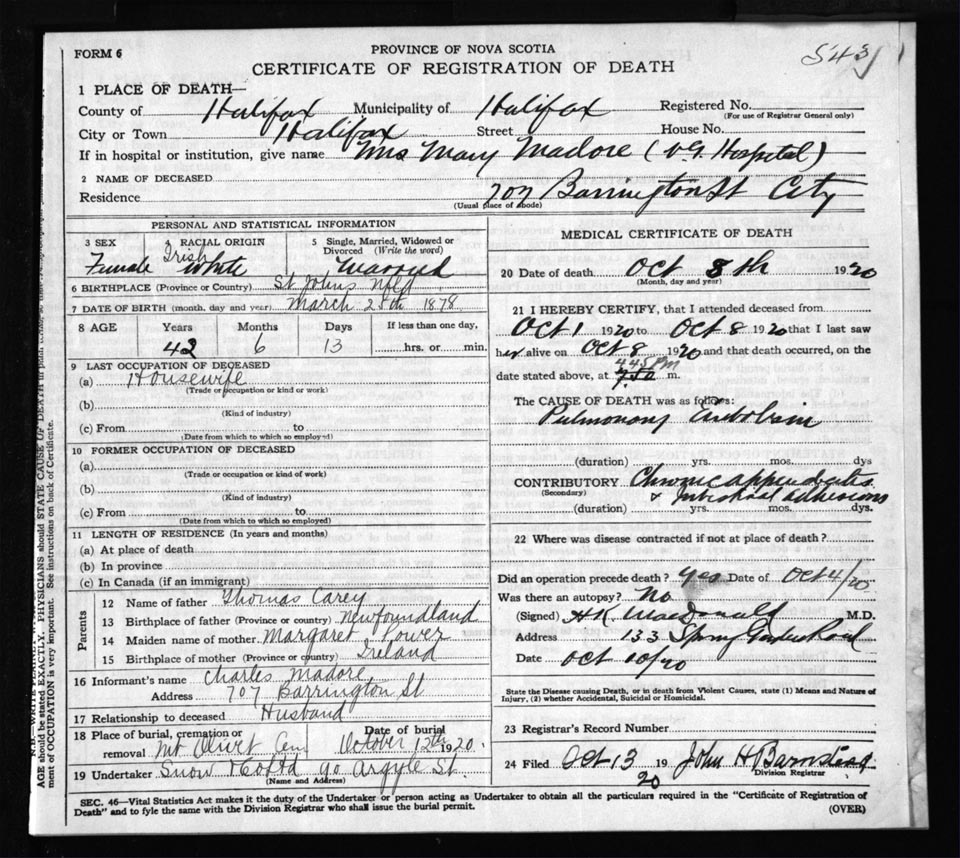 FORM 6
PROVINCE OF NOVA SCOTIA
543
CERTIFICATE OF REGISTRATION OF DEATH
1 PLACE OF DEATH—
County of Halifax Municipality of Halifax Registered No.
(For use of Registrar General only)
City or Town Halifax Street House No.
If in hospital or institution, give name Mrs Mary Madore (V.G. Hospital)
2 NAME OF DECEASED
Residence 707 Barrington St City
(Usual place of abode)
PERSONAL AND STATISTICAL INFORMATION
3 SEX RACIAL ORIGIN 5 Single, Married, Widowed or Divorced (Write the word)
Female Irish White Married
6 BIRTHPLACE (Province or Country) St Johns Nfld
7 DATE OF BIRTH (month, day and year) March 25th 1878
8 AGE Years Months Days If less than one day,
42 6 13 hrs. or min.
9 LAST OCCUPATION OF DECEASED
(a) Housewife
(Trade or occupation or kind or work)
(b)
(Kind of industry)
(c) From to
(Date from which to which so employed)
10 FORMER OCCUPATION OF DECEASED
(a)
(Trade or occupation or kind of work)
(b)
(Kind of industry)
(c) From to
(Date from which to which so employed)
11 LENGTH OF RESIDENCE (In years and months)
(a) At place of death
(b) In province
(c) In Canada (if an immigrant)
Parents
12 Name of father Thomas Carey
13 Birthplace of father (Province or country) Newfoundland
14 Maiden name of mother Margaret Power
15 Birthplace of mother (Province or country) Ireland
16 Informant's name Charles Madore
Address 707 Barrington St
17 Relationship to deceased Husband
18 Place of burial, cremation or removal Mt Olivet Cem Date of burial October 12th 1920
19 Undertaker Snow & Co Ltd 90 Argyle St.
(Name and Address)
MEDICAL CERTIFICATE OF DEATH
20 Date of death Oct 8th 1920
(Month, day and year)
21 I HEREBY CERTIFY, that I attended deceased from
Oct 1 1920 to Oct 8 1920 that I last saw
her alive on Oct 8 1920 and that death occurred, on the
4.45 PM
date stated above, at m.
The CAUSE OF DEATH was as follows:
Pulmonary Embolism
(duration) yrs. mos. dys
CONTRIBUTORY Chronic appendicitis
(Secondary) & Intestinal adhesions
(duration) yrs. mos. dys.
22 Where was disease contracted if not at place of death?
Did an operation precede death? Yes Date of Oct 4/20
Was there an autopsy? No
(Signed) H K MacDonald M.D.
Address 133 Spring Garden Road
Date Oct 10/20
State the Disease causing Death, or in death from Violent Causes, state (1) Means and Nature of
Injury, (2) whether Accidental, Suicidal or Homicidal.
23 Registrar's Record Number
24 Filed Oct 13 1920 John H Barnstead
Division Registrar
SEC. 46—Vital Statistics Act makes it the duty of the Undertaker or person acting as Undertaker to obtain all the particulars required in the "Certificate of Registration of
Death" and to fyle the same with the Division Registrar who shall issue the burial permit.
(OVER)
AGE should be stated EXACTLY. PHYSICIANS should STATE CAUSE OF DEATH in plain
ment of OCCUPATION is very important. See instructions on back of Certificate.